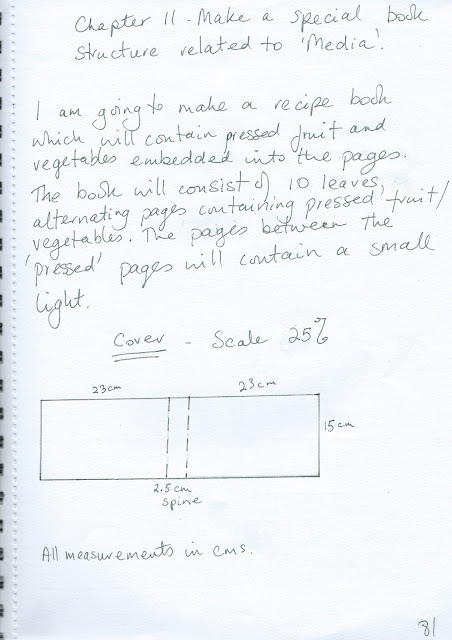 Chapter 11 - Make a special book
structure related to 'Media'.
I am going to make a recipe book
which will contain pressed fruit and
vegetables embedded into the pages.
The book will consist of 10 leaves,
alternating pages containing pressed fruit/
vegetables. The pages between the
'pressed' pages will contain a small
light.
Cover - Scale 25%
23cm 23cm
15cm
2.5cm
Spine
All measurements in cms.
81